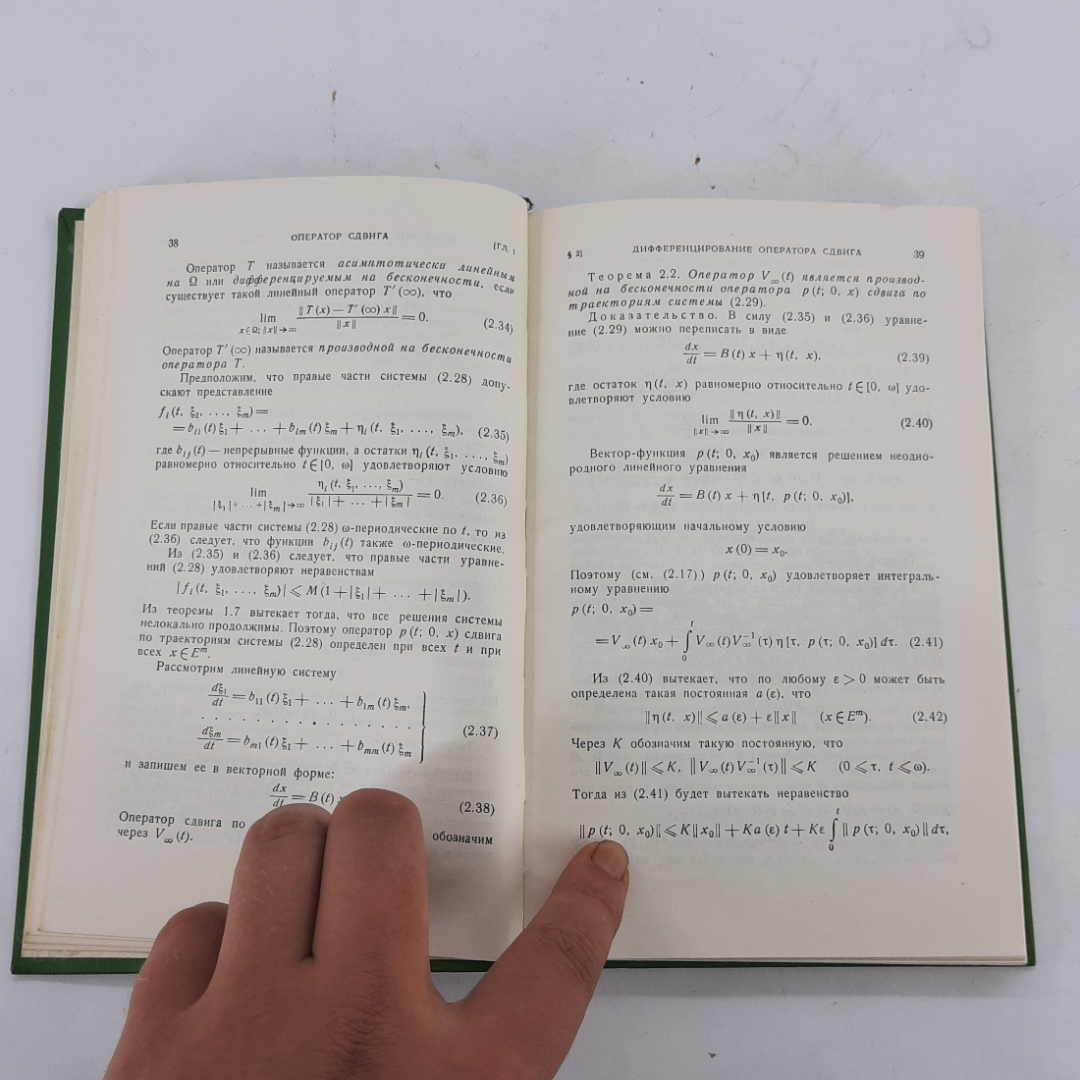 38
ОПЕРАТОР СДВИГА
[ГЛ. I
Оператор T называется асимптотически линейным
на Ω или дифференцируемым на бесконечности, если
существует такой линейный оператор T′(∞), что
lim x∈Ω; ‖x‖→∞ ‖T(x) — T′(∞) x‖ / ‖x‖ = 0. (2.34)
Оператор T′(∞) называется производной на бесконечности
оператора T.
Предположим, что правые части системы (2.28) допу-
скают представление
f_i(t, ξ₁, ..., ξ_m) =
= b_{i1}(t) ξ₁ + ... + b_{im}(t) ξ_m + η_i(t, ξ₁, ..., ξ_m), (2.35)
где b_{ij}(t) — непрерывные функции, а остатки η_i(t, ξ₁, ..., ξ_m)
равномерно относительно t∈[0, ω] удовлетворяют условию
lim |ξ₁|+ ... +|ξ_m|→∞ η_i(t, ξ₁, ..., ξ_m) / |ξ₁|+ ... +|ξ_m| = 0. (2.36)
Если правые части системы (2.28) ω-периодические по t, то из
(2.36) следует, что функции b_{ij}(t) также ω-периодические.
Из (2.35) и (2.36) следует, что правые части уравне-
ний (2.28) удовлетворяют неравенствам
|f_i(t, ξ₁, ..., ξ_m)| ⩽ M(1+|ξ₁|+ ... +|ξ_m|).
Из теоремы 1.7 вытекает тогда, что все решения системы
нелокально продолжимы. Поэтому оператор p(t; 0, x) сдвига
по траекториям системы (2.28) определен при всех t и при
всех x∈E^m.
Рассмотрим линейную систему
dξ₁/dt = b₁₁(t) ξ₁ + ... + b_{1m}(t) ξ_m,
. . . . . . . . . . . . . . .
dξ_m/dt = b_{m1}(t) ξ₁ + ... + b_{mm}(t) ξ_m (2.37)
и запишем ее в векторной форме:
dx/dt = B(t) (2.38)
Оператор сдвига по обозначим
через V_∞(t).
§ 2]
ДИФФЕРЕНЦИРОВАНИЕ ОПЕРАТОРА СДВИГА
39
Теорема 2.2. Оператор V_∞(t) является производ-
ной на бесконечности оператора p(t; 0, x) сдвига по
траекториям системы (2.29).
Доказательство. В силу (2.35) и (2.36) уравне-
ние (2.29) можно переписать в виде
dx/dt = B(t) x + η(t, x), (2.39)
где остаток η(t, x) равномерно относительно t∈[0, ω] удо-
влетворяют условию
lim ‖x‖→∞ ‖η(t, x)‖ / ‖x‖ = 0. (2.40)
Вектор-функция p(t; 0, x₀) является решением неодно-
родного линейного уравнения
dx/dt = B(t) x + η[t, p(t; 0, x₀)],
удовлетворяющим начальному условию
x(0) = x₀.
Поэтому (см. (2.17)) p(t; 0, x₀) удовлетворяет интеграль-
ному уравнению
p(t; 0, x₀) =
= V_∞(t) x₀ + ∫₀^t V_∞(t) V_∞^{-1}(τ) η[τ, p(τ; 0, x₀)] dτ. (2.41)
Из (2.40) вытекает, что по любому ε > 0 может быть
определена такая постоянная a(ε), что
‖η(t, x)‖ ⩽ a(ε) + ε‖x‖ (x∈E^m). (2.42)
Через K обозначим такую постоянную, что
‖V_∞(t)‖ ⩽ K, ‖V_∞(t) V_∞^{-1}(τ)‖ ⩽ K (0 ⩽ τ, t ⩽ ω).
Тогда из (2.41) будет вытекать неравенство
‖p(t; 0, x₀)‖ ⩽ K‖x₀‖ + Ka(ε) t + Kε ∫₀^t ‖p(τ; 0, x₀)‖ dτ,